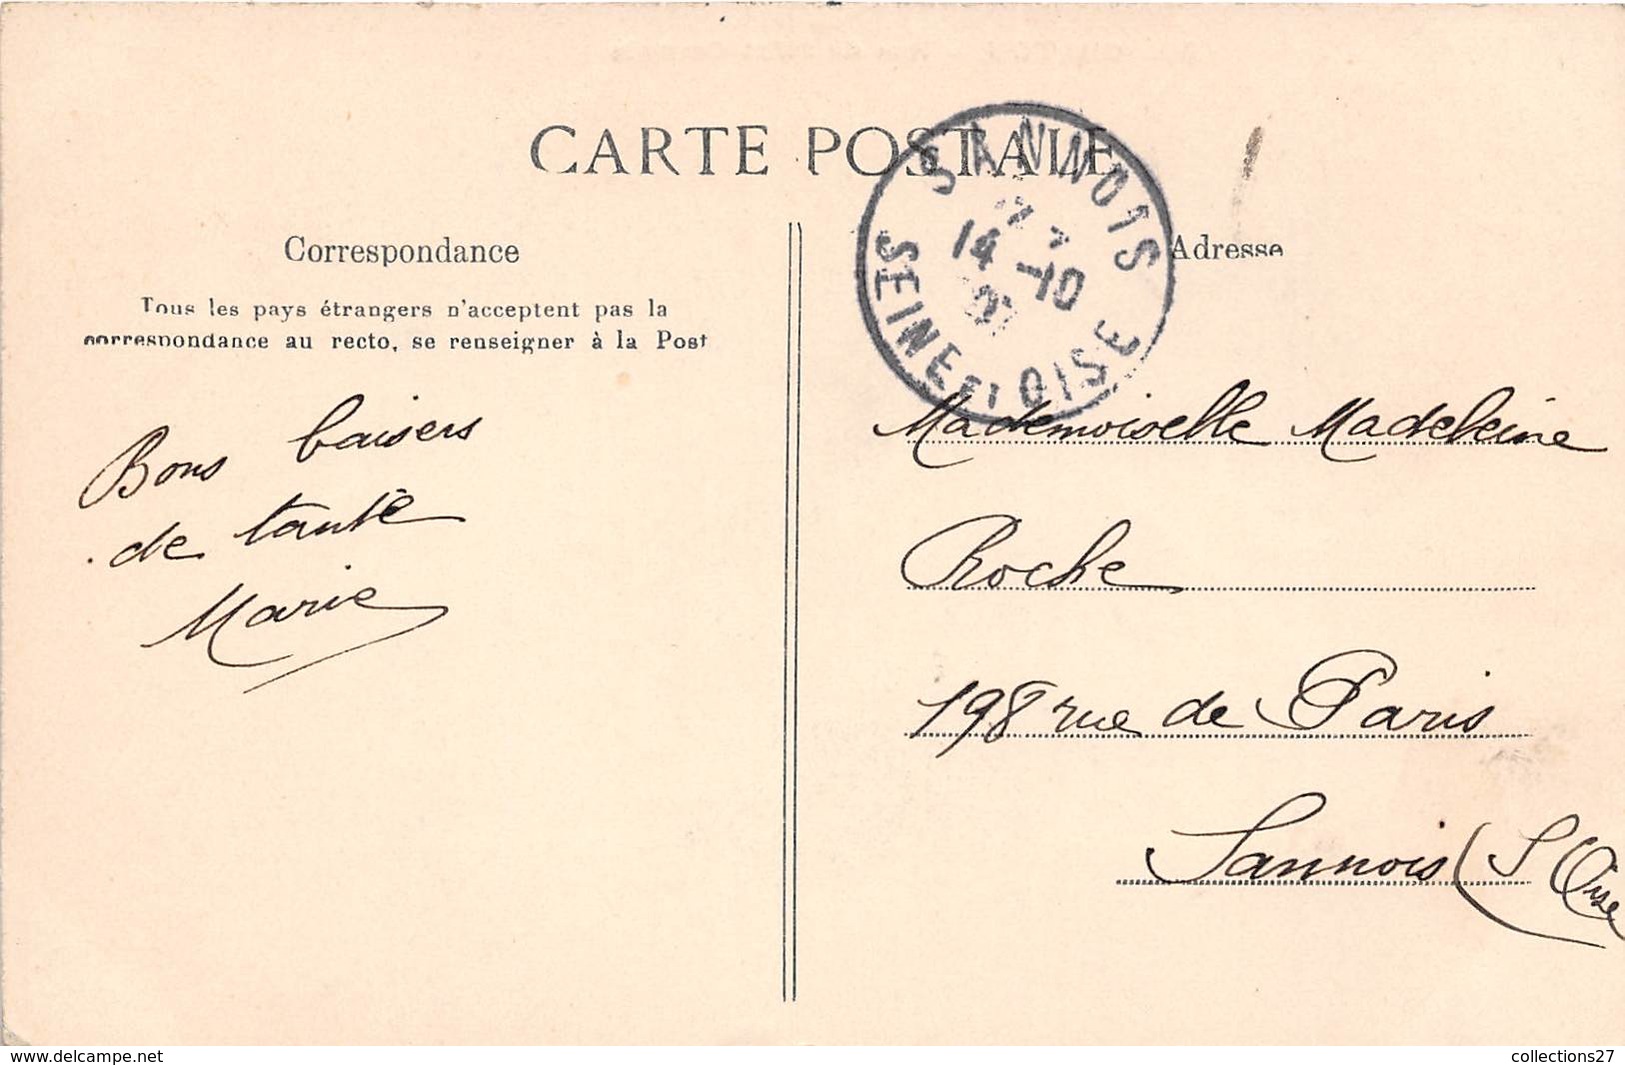 CARTE POSTALE
SANNOIS
14 -10
SEINE ET OISE
Correspondance
Adresse
Tous les pays étrangers n'acceptent pas la
correspondance au recto, se renseigner à la Post
Bons baisers
de tante
Marie
Mademoiselle Madeleine
Roche
198 rue de Paris
Sannois (S Oise
www.delcampe.net
collections27